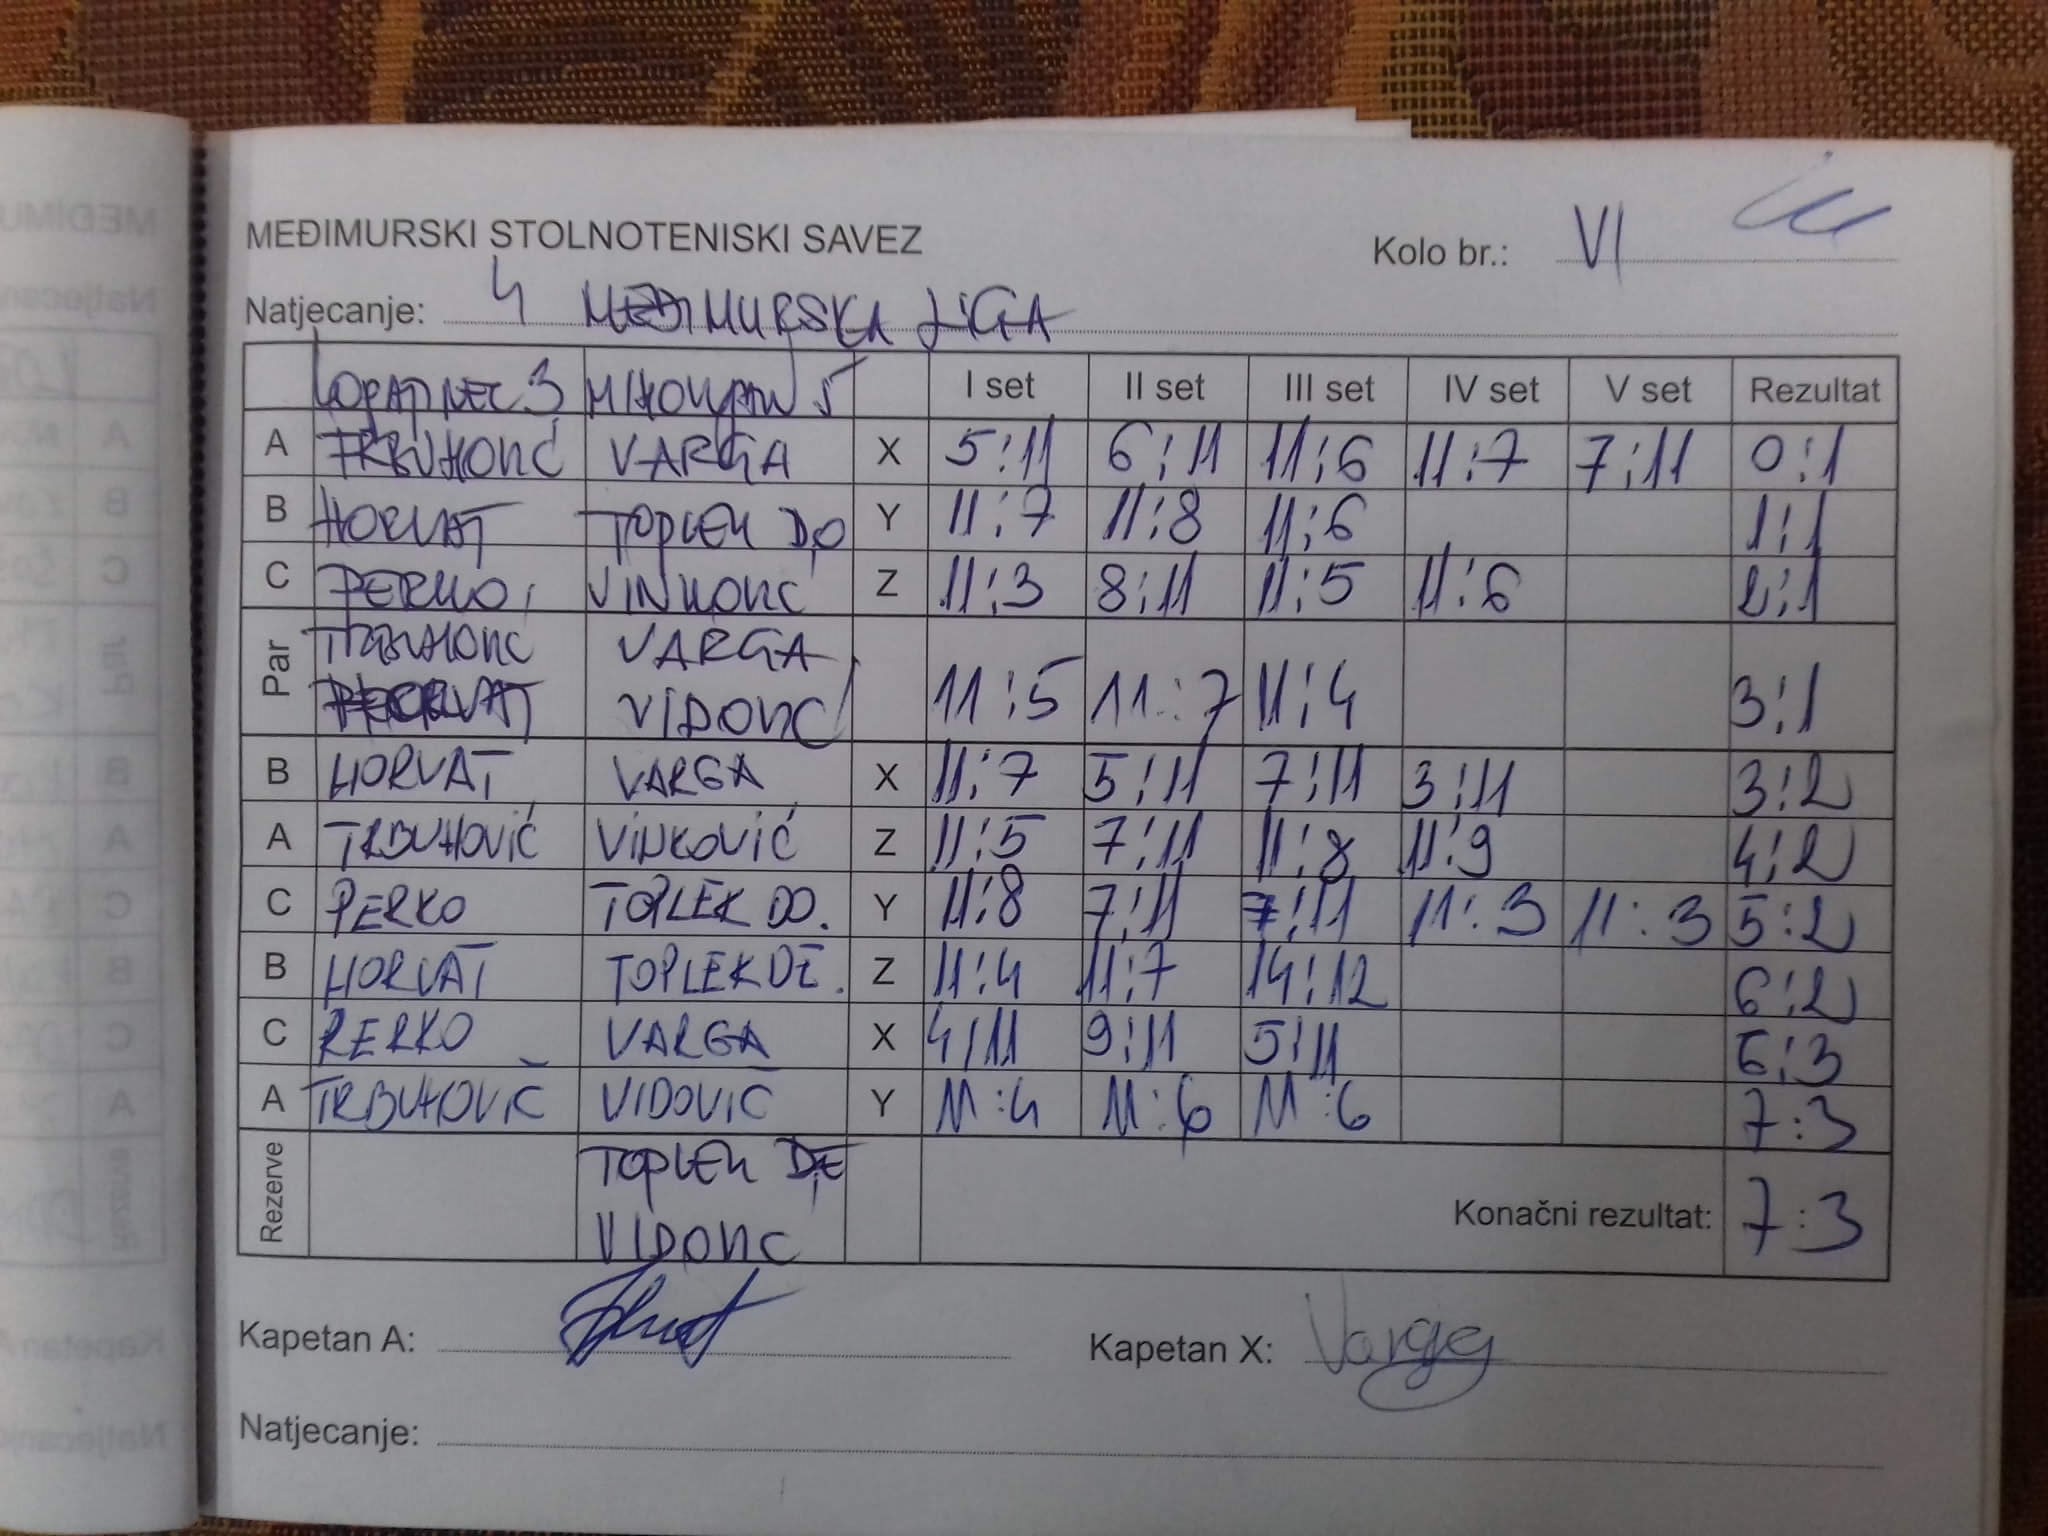 MEĐIMURSKI STOLNOTENISKI SAVEZ
Kolo br.: VI
Natjecanje: 4 MEĐIMURSKA LIGA
LOPATINEC 3 MIHOVLJAN 5 I set II set III set IV set V set Rezultat
A TRBUHOVIĆ VARGA X 5:11 6:11 11:6 11:7 7:11 0:1
B HORVAT TOPLEK DO Y 11:7 11:8 11:6 1:1
C PERKO VINKOVIĆ Z 11:3 8:11 11:5 11:6 2:1
Par TRBUHOVIĆ VARGA
HORVAT VIDOVIĆ 11:5 11:7 11:4 3:1
B HORVAT VARGA X 11:7 5:11 7:11 3:11 3:2
A TRBUHOVIĆ VINKOVIĆ Z 11:5 7:11 11:8 11:9 4:2
C PERKO TOPLEK DO. Y 11:8 7:11 7:11 11:3 11:3 5:2
B HORVAT TOPLEK DE. Z 11:4 11:7 14:12 6:2
C PERKO VARGA X 4:11 9:11 5:11 6:3
A TRBUHOVIĆ VIDOVIĆ Y 11:4 11:6 11:6 7:3
Rezerve TOPLEK DE
VIDOVIĆ
Konačni rezultat: 7:3
Kapetan A:
Kapetan X: Varga
Natjecanje: